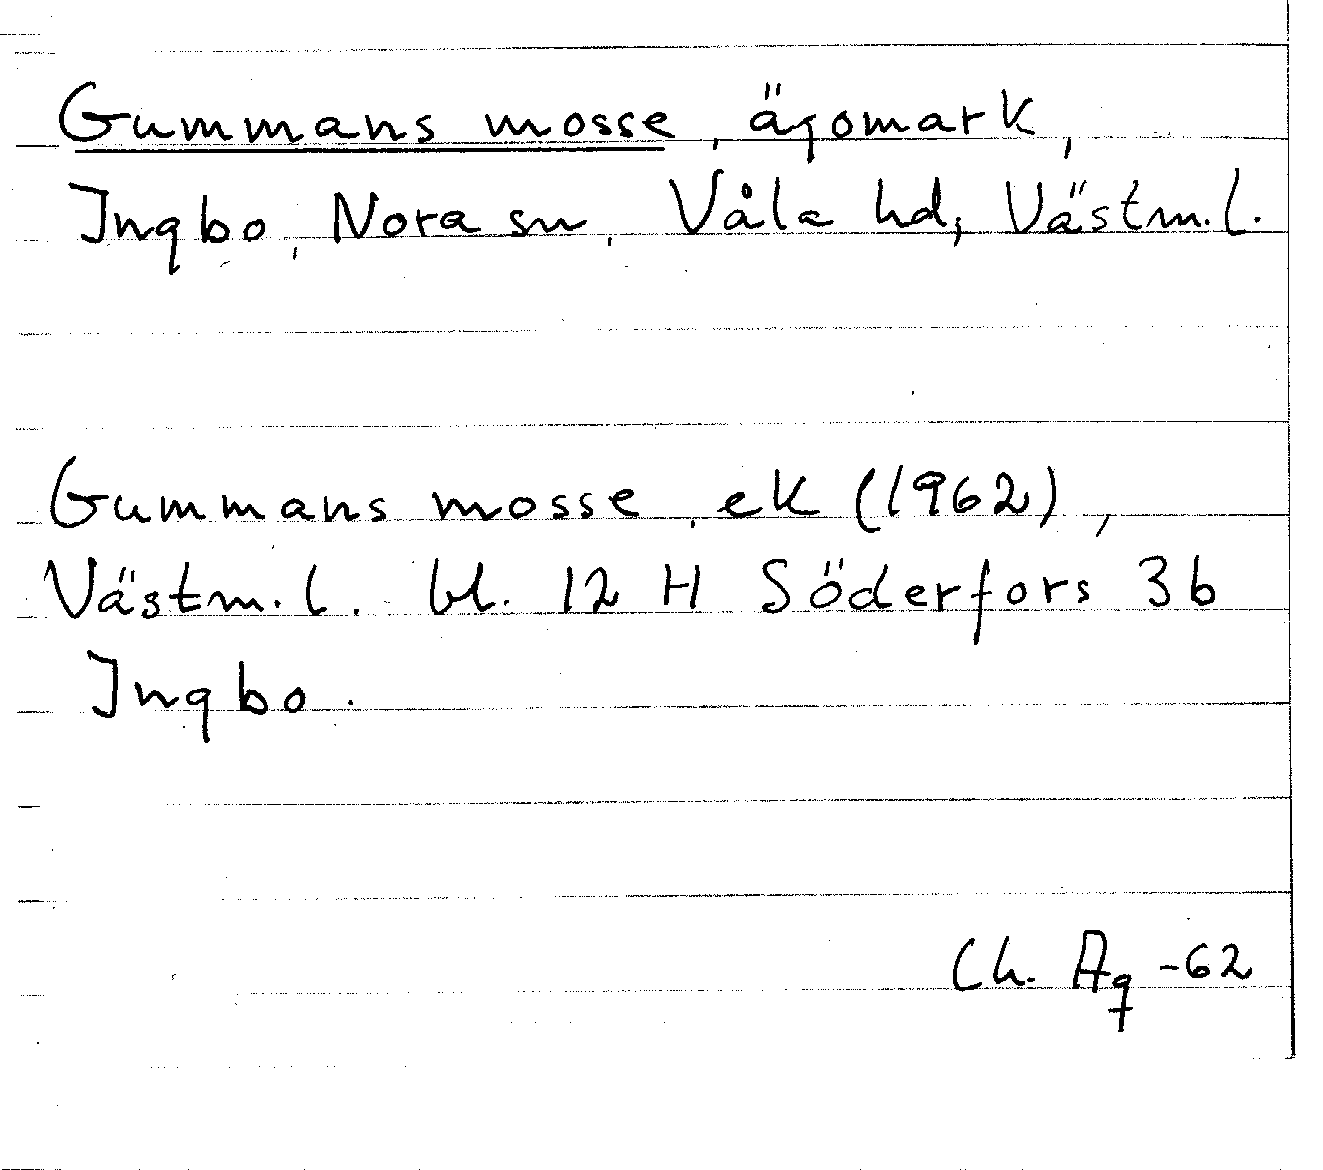 Gummans mosse, ägomark,
Ingbo, Nora sn, Våla hd, Västm. l.
Gummans mosse, ek (1962),
Västm. l. bl. 12 H Söderfors 3b
Ingbo.
Ch. Ag -62